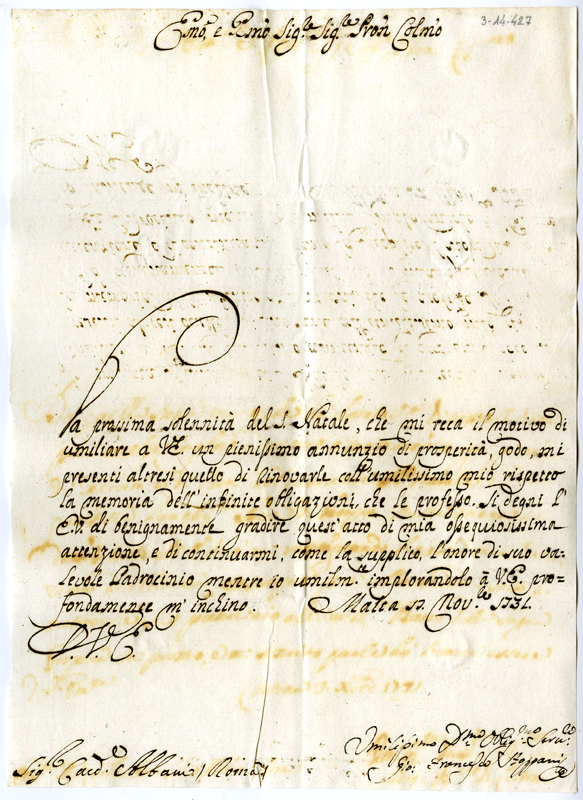 3-14-427
Emo, e Rmo Sigre Sigre Pron Colmo
La prossima solennità del S. Natale, che mi reca il motivo di
umiliare a VE. un pienissimo annunzio di prosperità, godo, mi
presenti altresì quello di rinovarle coll' umilissimo mio rispetto
la memoria dell' infinite obligazioni, che le professo. Si degni l'
E.V. di benignamente gradire quest' atto di mia ossequiosissima
attenzione, e di continuarmi, come la supplico, l'onore di suo va-
levole Padrocinio mentre io umilmte implorandolo à V.E. pro-
fondamente m' inchino. Malta 17. Novre 1731.
D. V. E.
Umilissimo Dmo Obligmo Servre
Gio: Francesco Stoppani
Sigre Card. Albani / Roma /